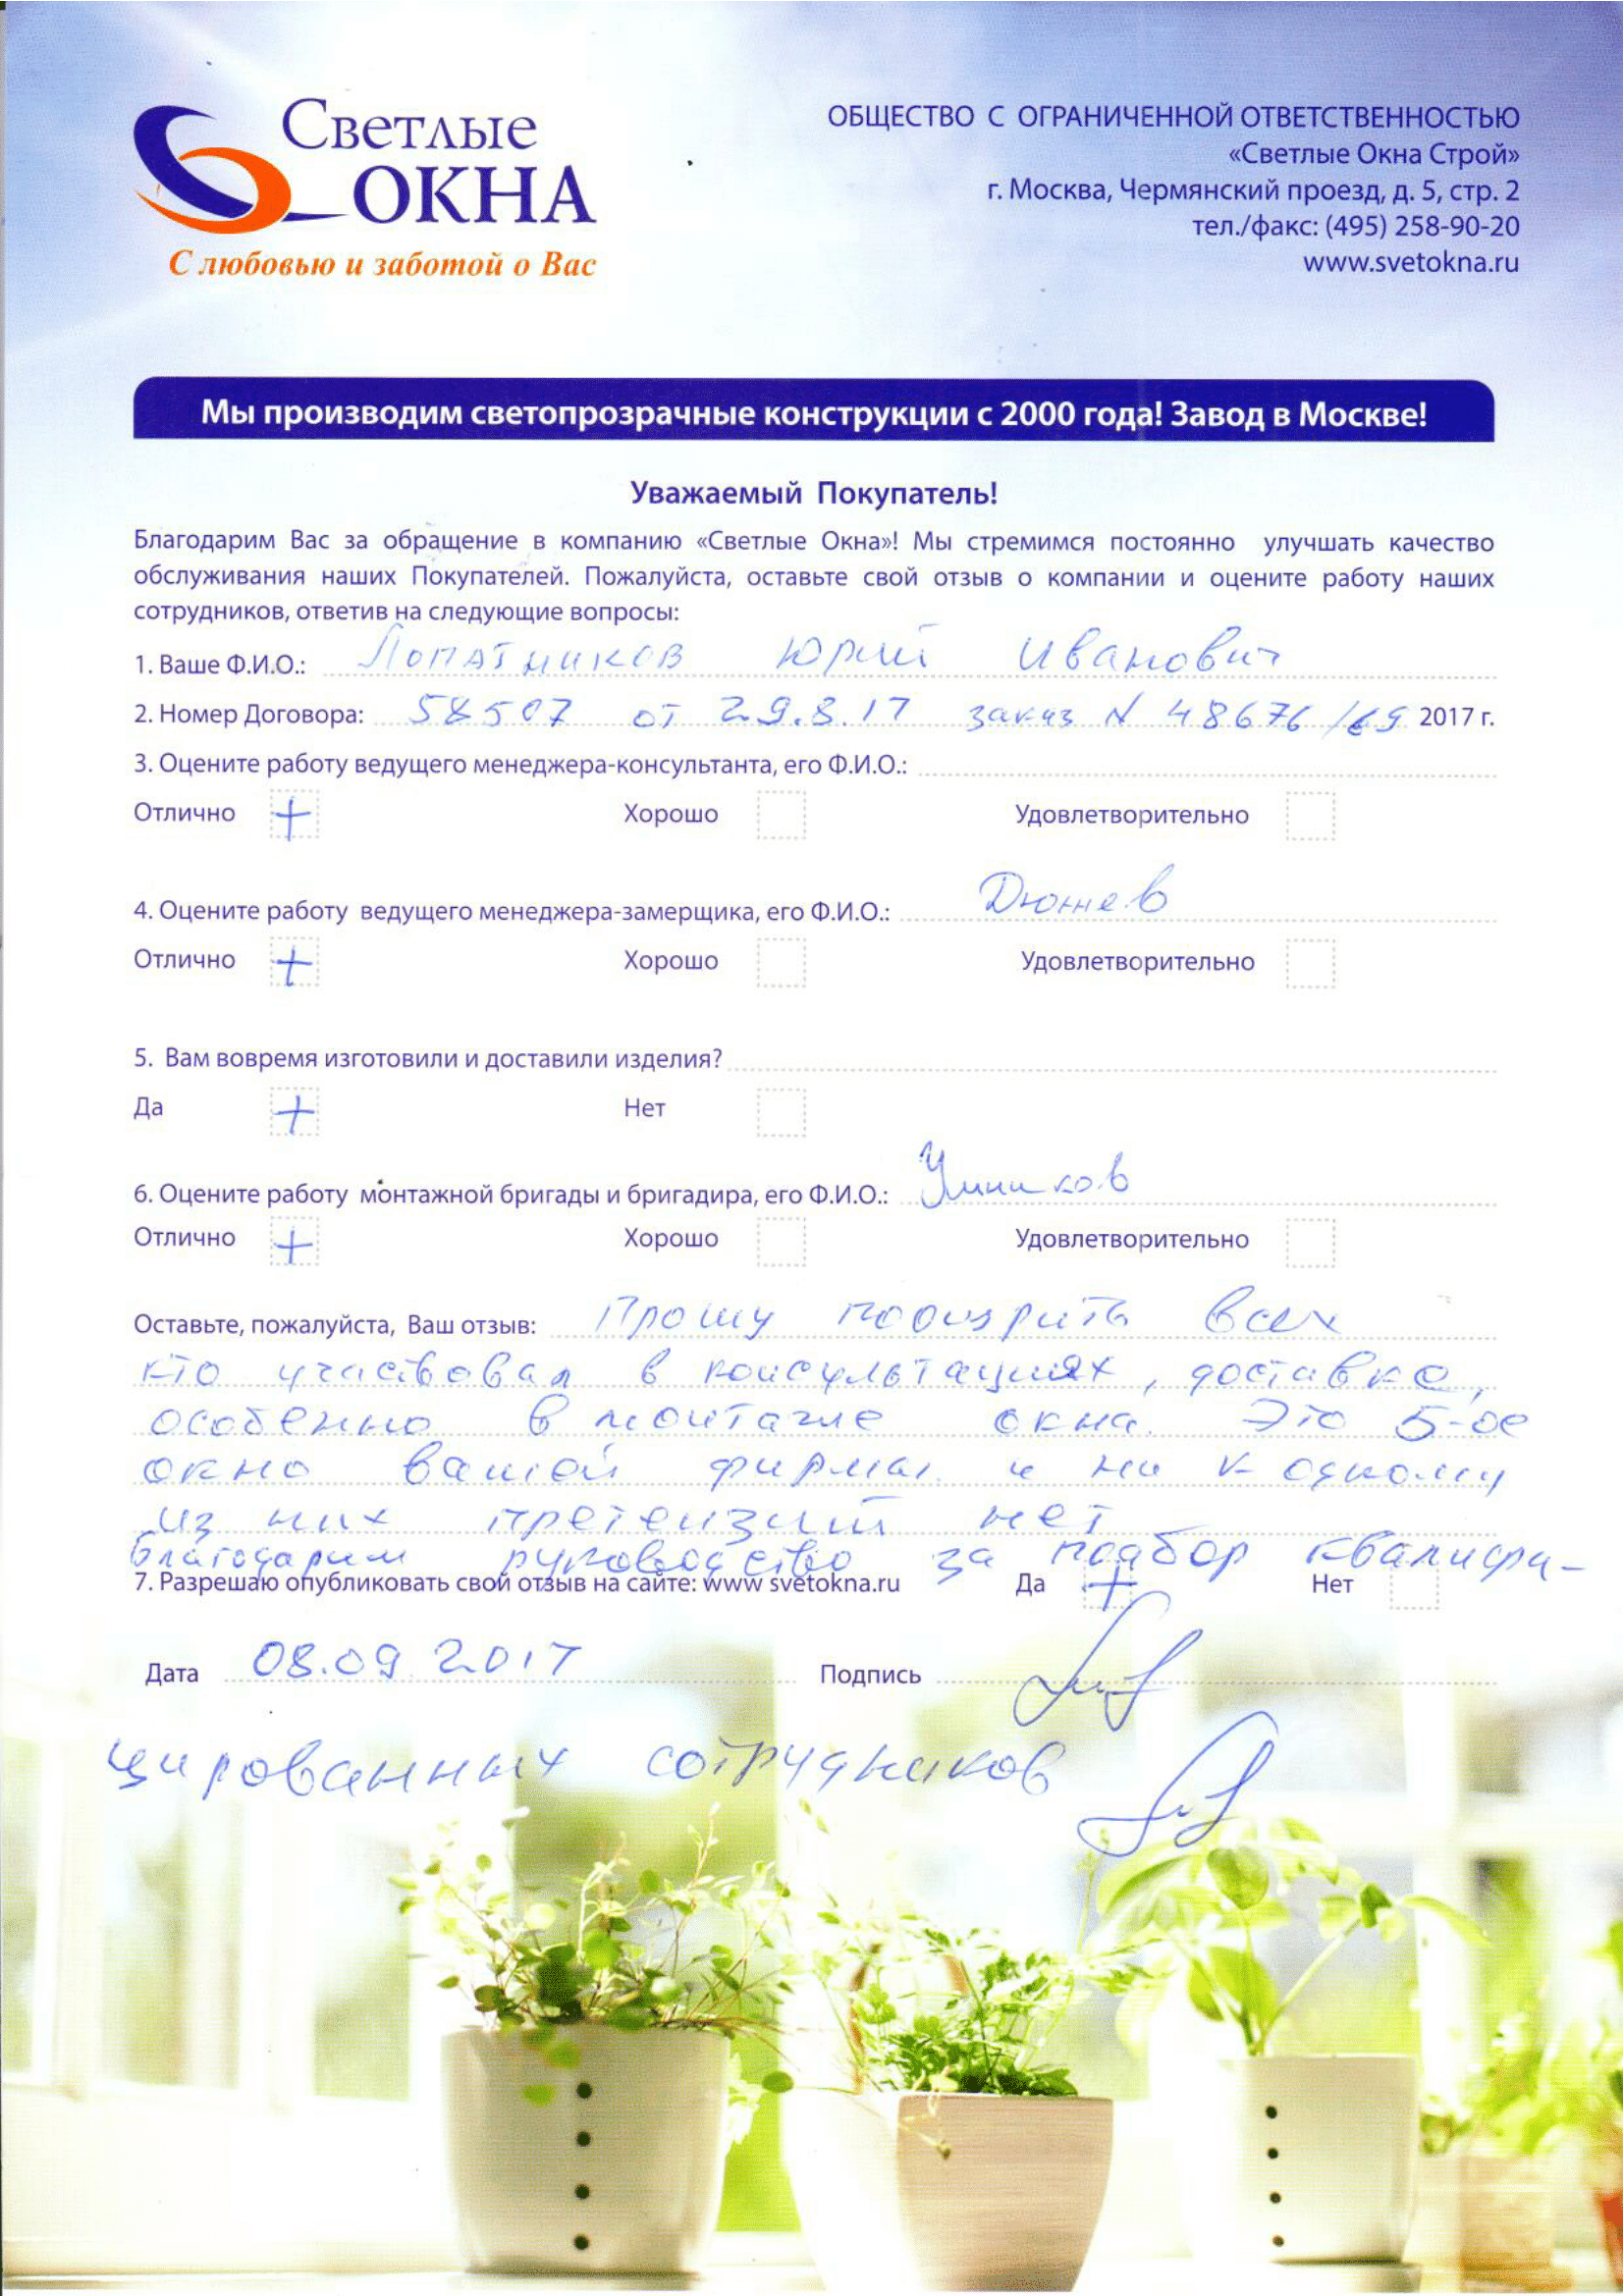 Светлые
ОКНА
С любовью и заботой о Вас
ОБЩЕСТВО С ОГРАНИЧЕННОЙ ОТВЕТСТВЕННОСТЬЮ
«Светлые Окна Строй»
г. Москва, Чермянский проезд, д. 5, стр. 2
тел./факс: (495) 258-90-20
www.svetokna.ru
Мы производим светопрозрачные конструкции с 2000 года! Завод в Москве!
Уважаемый Покупатель!
Благодарим Вас за обращение в компанию «Светлые Окна»! Мы стремимся постоянно улучшать качество
обслуживания наших Покупателей. Пожалуйста, оставьте свой отзыв о компании и оцените работу наших
сотрудников, ответив на следующие вопросы:
1. Ваше Ф.И.О.: Лопатников Юрий Иванович
2. Номер Договора: 58507 от 29.8.17 заказ N 48676 / 2017 г.
3. Оцените работу ведущего менеджера-консультанта, его Ф.И.О.:
Отлично + Хорошо Удовлетворительно
4. Оцените работу ведущего менеджера-замерщика, его Ф.И.О.: Дюжев
Отлично + Хорошо Удовлетворительно
5. Вам вовремя изготовили и доставили изделия?
Да + Нет
6. Оцените работу монтажной бригады и бригадира, его Ф.И.О.:
Отлично + Хорошо Удовлетворительно
Оставьте, пожалуйста, Ваш отзыв: Прошу поощрить всех
кто участвовал в консультациях, доставке,
особенно в монтаже окна. Это 5-ое
окно вашей фирмы и ни к одному
из них претензий нет
благодарим руководство за подбор квалифи-
7. Разрешаю опубликовать свой отзыв на сайте: www svetokna.ru Да + Нет
Дата 08.09.2017 Подпись
цированных сотрудников